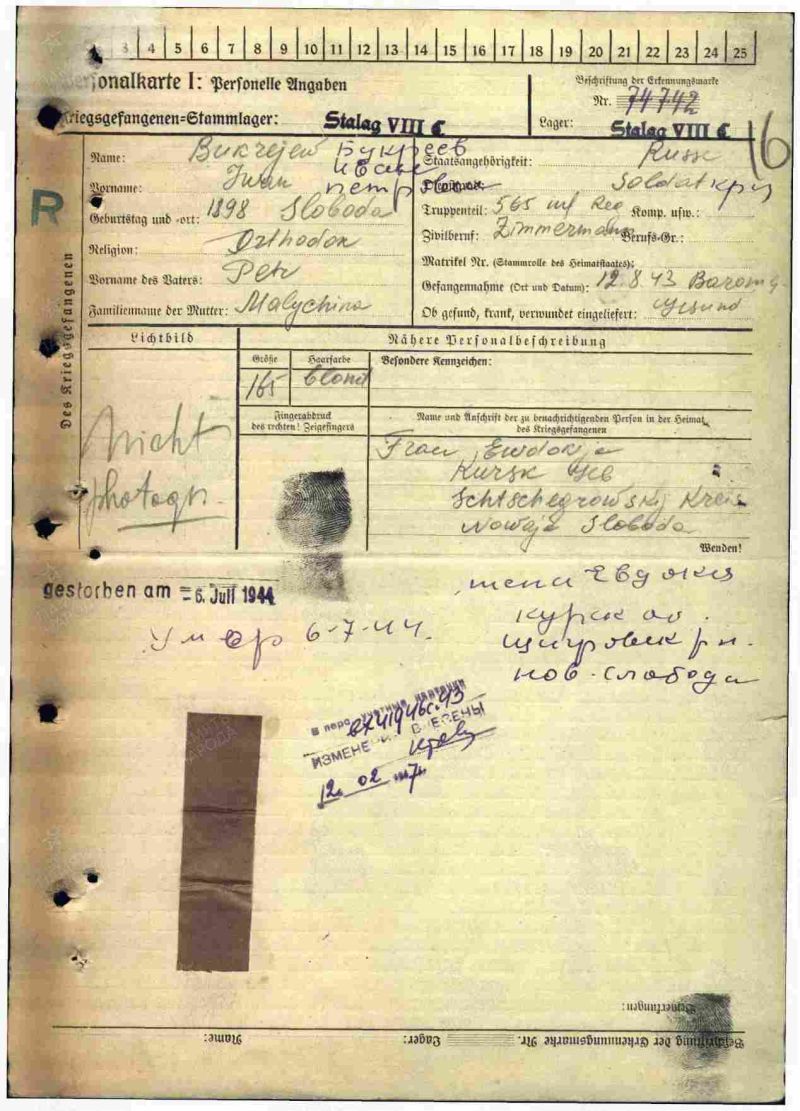 3 4 5 6 7 8 9 10 11 12 13 14 15 16 17 18 19 20 21 22 23 24 25
Personalkarte I: Personelle Angaben
Beschriftung der Erkennungsmarke
Nr. 74742
Kriegsgefangenen=Stammlager: Stalag VIII C
Lager: Stalag VIII C
16
R
Des Kriegsgefangenen
Name: Bukrejew Букреев
Vorname: Iwan Иван
Петрович
Geburtstag und -ort: 1898 Sloboda
Religion: Orthodox
Vorname des Vaters: Petr
Familienname der Mutter: Malychina
Staatsangehörigkeit: Russe
Soldat
Truppenteil: 565 inf Reg Komp. usw.:
Zivilberuf: Zimmermann Berufs-Gr.:
Matrikel Nr. (Stammrolle des Heimatstaates):
Gefangennahme (Ort und Datum): 12.8.43
Ob gesund, krank, verwundet eingeliefert: gesund
Lichtbild
Nicht
photogr.
Nähere Personalbeschreibung
Größe Haarfarbe Besondere Kennzeichen:
165 blond
Fingerabdruck
des rechten! Zeigefingers
Name und Anschrift der zu benachrichtigenden Person in der Heimat
des Kriegsgefangenen
Frau Ewdokja
Kursk Geb
Schtschegrowskij Kreis
Nowaja Sloboda
Wenden!
gestorben am =6. Juli 1944
Умер 6-7-44.
жена Евдокия
Курск об.
Щигровск р-н.
Нов-Слобода
В перс. учетные
вх41946с.43
ИЗМЕНЕНИЯ ВНЕСЕНЫ
12. 02
Bemerkungen:
Beschriftung der Erkennungsmarke Nr. Lager: Name: